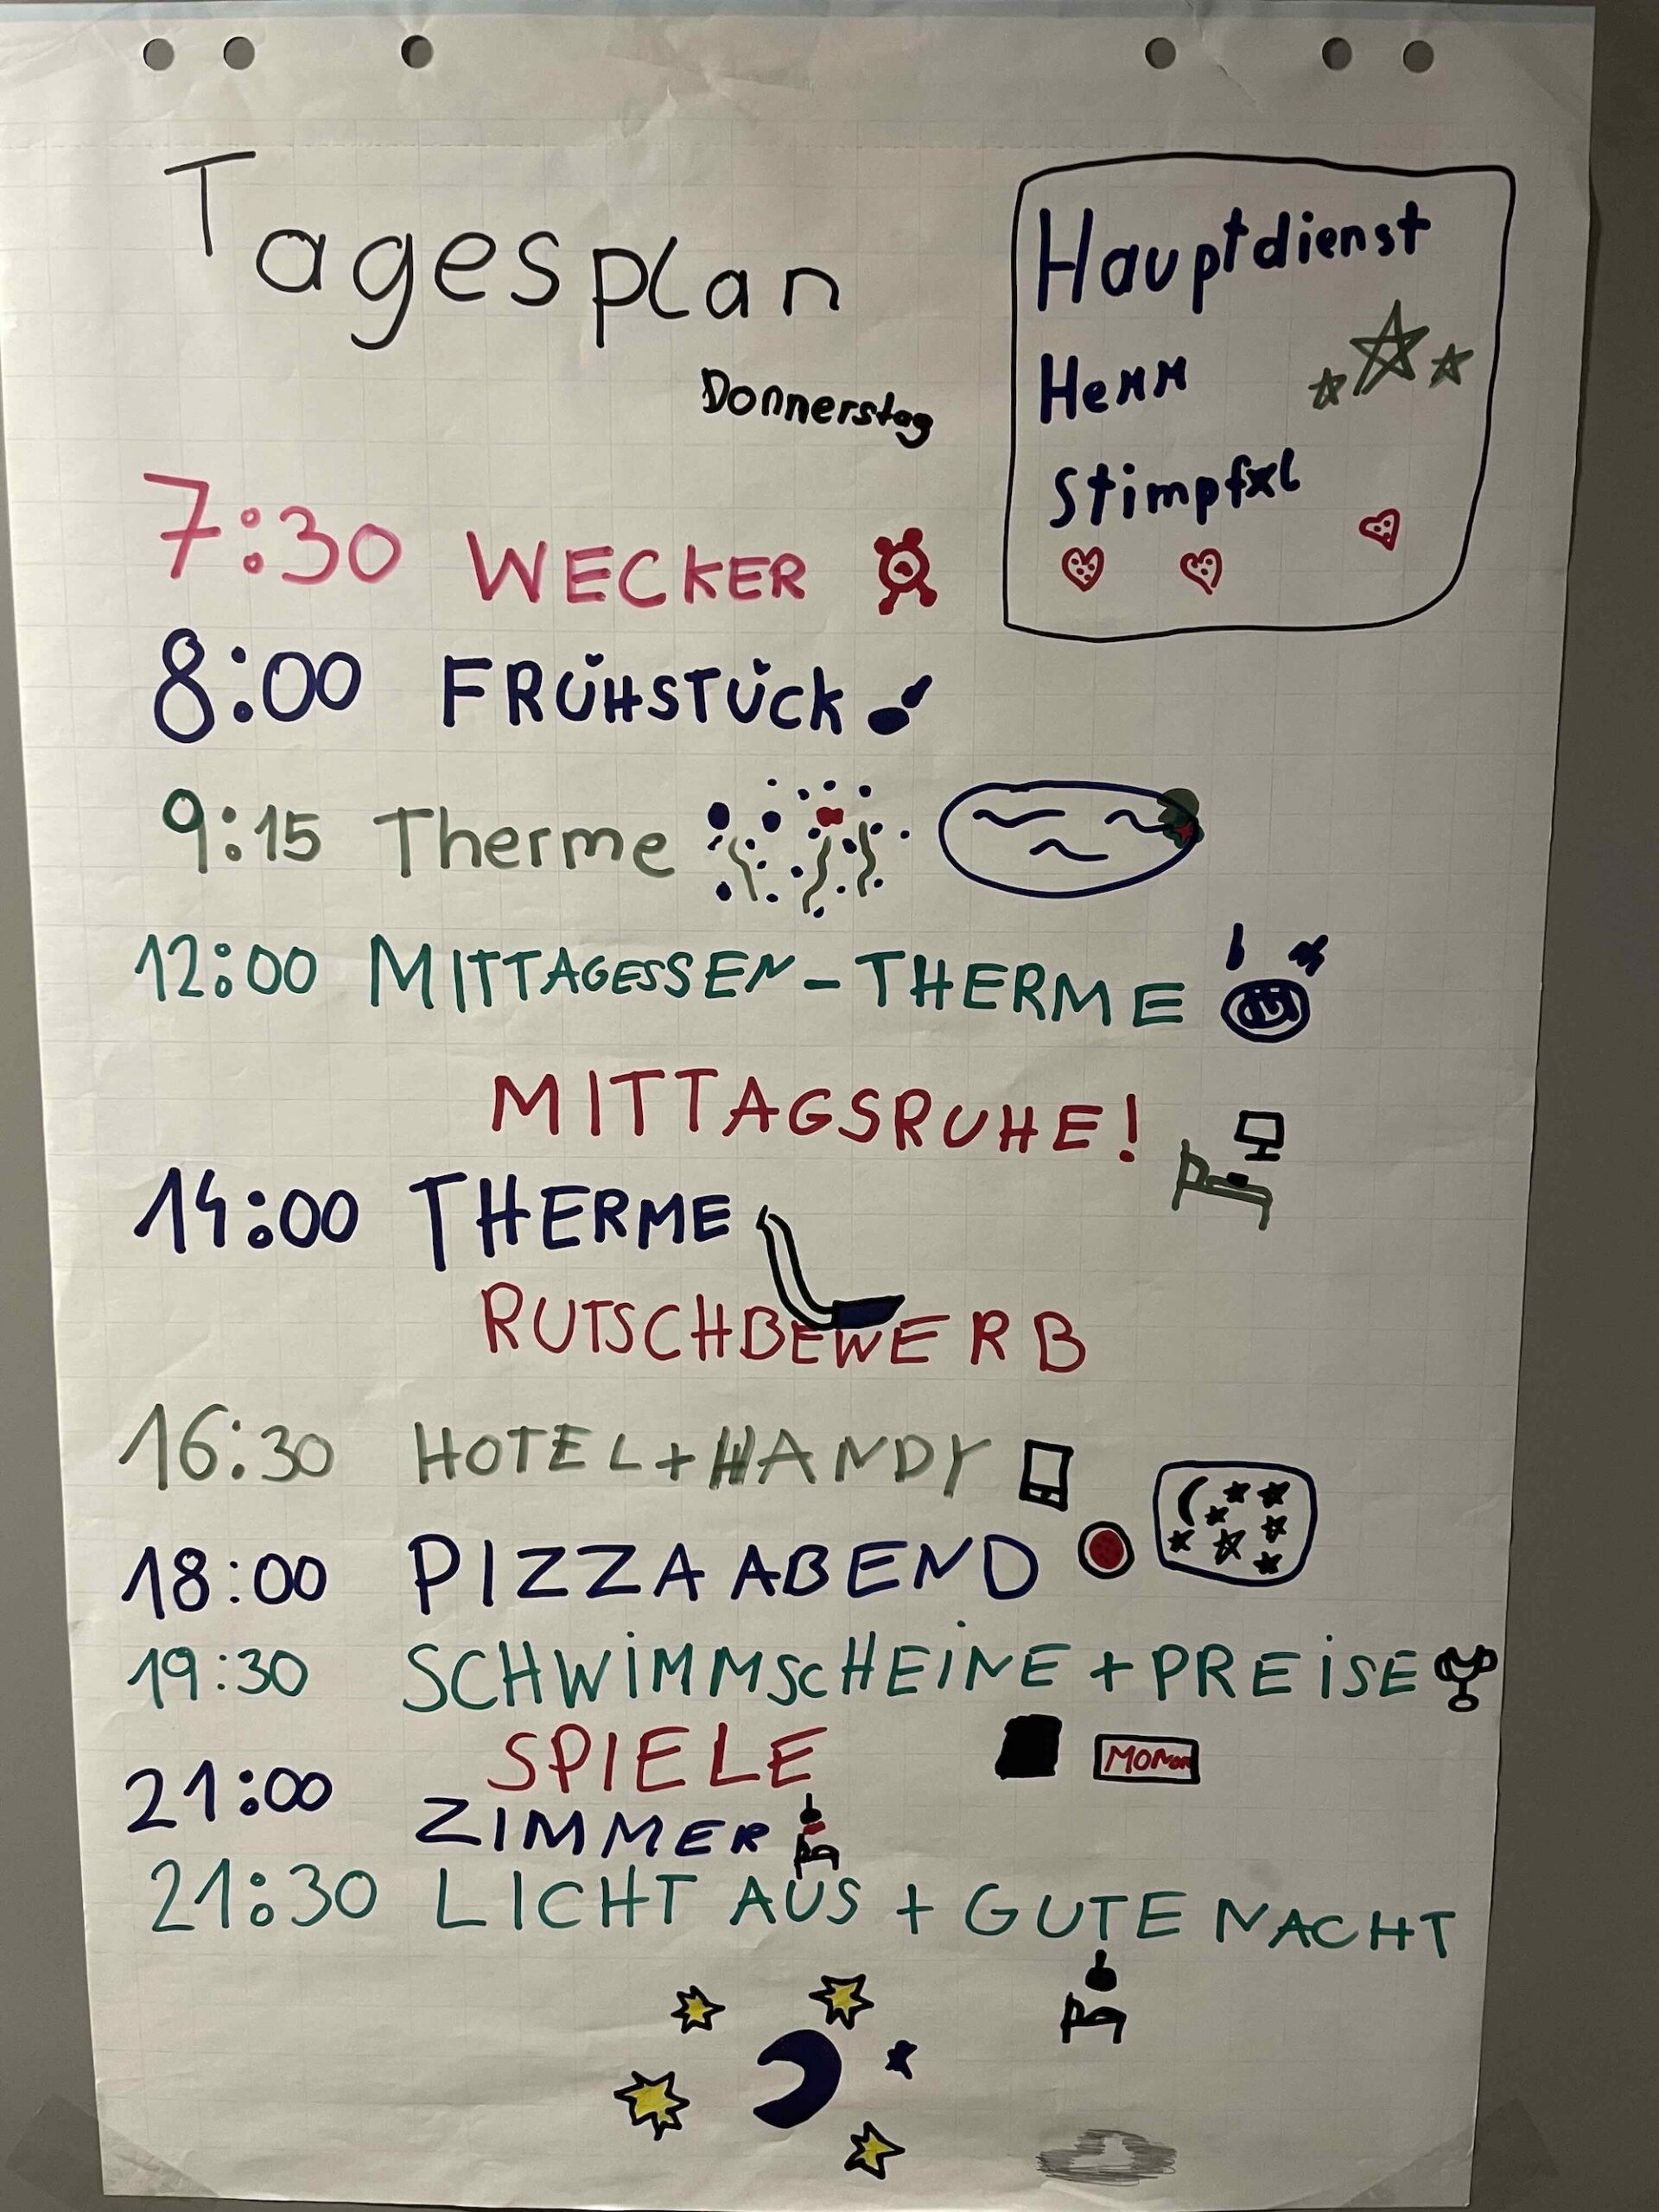 Tagesplan
Donnerstag
Hauptdienst
Herr
7:30 WECKER
8:00 FRÜHSTÜCK
9:15 Therme
12:00 MITTAGESSEN - THERME
MITTAGSRUHE!
14:00 THERME
RUTSCHBEWERB
16:30 HOTEL + HANDY
18:00 PIZZA ABEND
19:30 SCHWIMMSCHEINE + PREISE
SPIELE
21:00 ZIMMER
21:30 LICHT AUS + GUTE NACHT